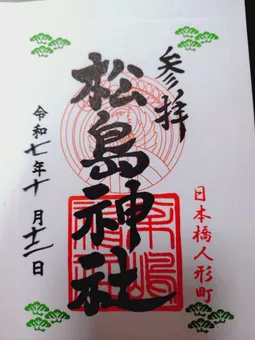 参拝
松島神社
日本橋人形町
令和七年十月十二日